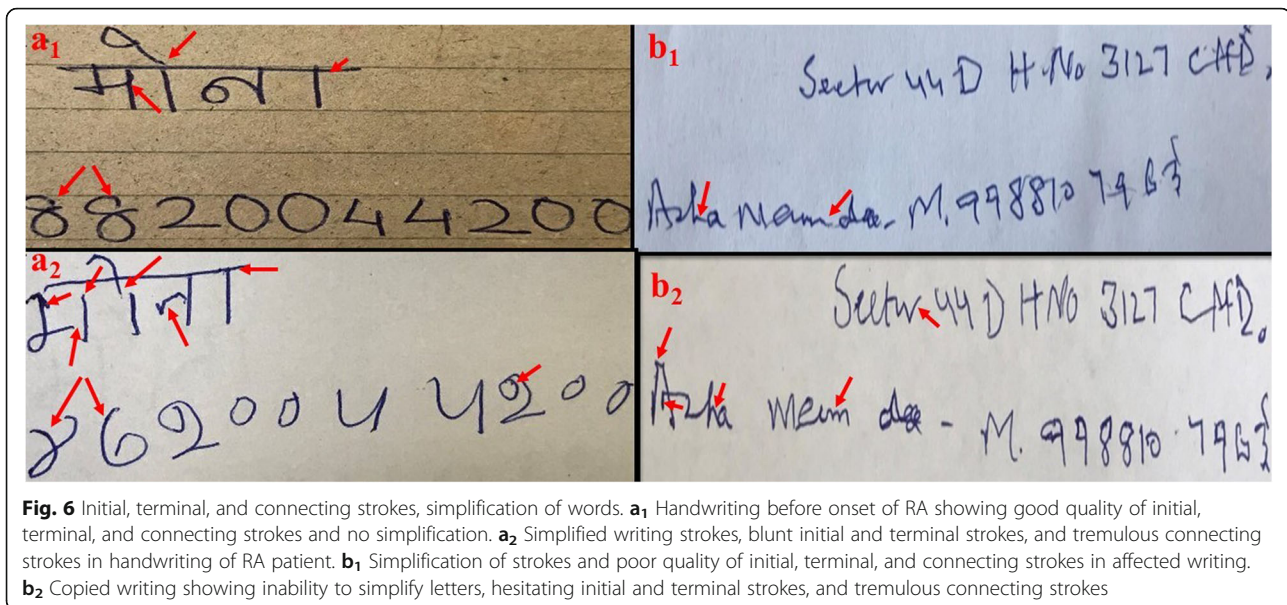 a1
मोना
8820044200
b1
Sector 44 D H.No 3127 CHD.
Asha - M. 998810 7963
a2
मोना
8620044200
b2
Sector 44 D H NO 3127 CHD.
Asha - M. 998810 7963
Fig. 6 Initial, terminal, and connecting strokes, simplification of words. a1 Handwriting before onset of RA showing good quality of initial,
terminal, and connecting strokes and no simplification. a2 Simplified writing strokes, blunt initial and terminal strokes, and tremulous connecting
strokes in handwriting of RA patient. b1 Simplification of strokes and poor quality of initial, terminal, and connecting strokes in affected writing.
b2 Copied writing showing inability to simplify letters, hesitating initial and terminal strokes, and tremulous connecting strokes